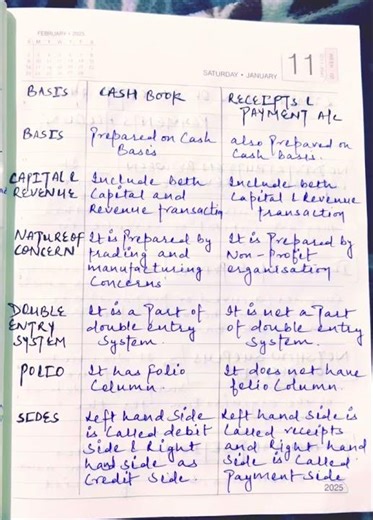 FEBRUARY - 2025
SATURDAY • JANUARY 11
BASIS CASH BOOK RECEIPTS &
PAYMENT A/c
BASIS Prepared on Cash also Prepared on
Basis Cash basis.
CAPITAL & Include both Include both
REVENUE Capital and Capital & Revenue
Revenue transaction transaction
NATURE OF It is Prepared by It is Prepared by
CONCERN trading and Non-Profit
manufacturing organisation
Concerns
DOUBLE It is a Part of It is not a Part
ENTRY double entry of double entry
SYSTEM System. System.
FOLIO It has folio It does not have
Column. folio Column.
SIDES Left hand Side Left hand Side is
is Called debit Called receipts
Side & Right and Right hand
hand side as Side is Called
Credit Side. Payment Side
2025